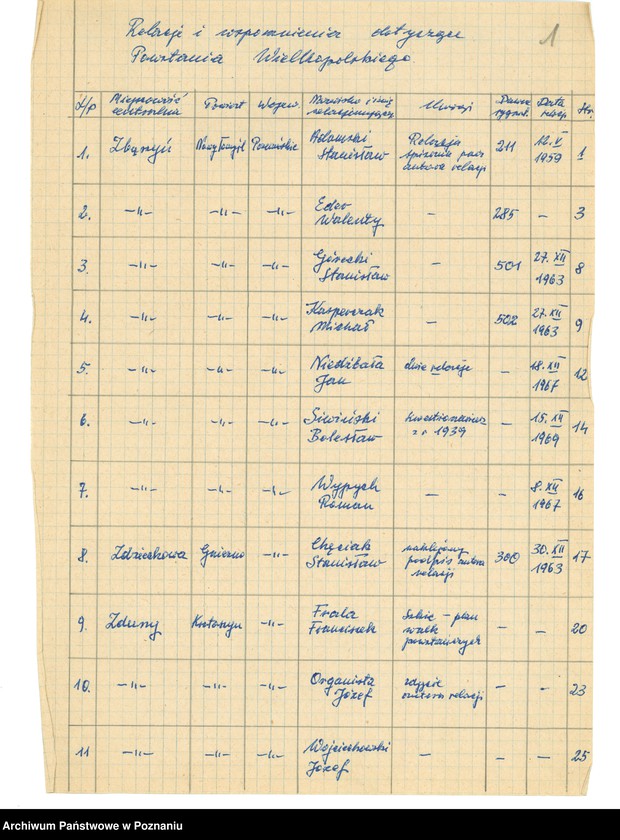 Relacje i wspomnienia dotyczące
1
Powstania Wielkopolskiego
L/p Miejscowość Powiat Wojew. Nazwisko i imię Uwagi Dawna Data Str.
relacjonującego sygnat. relacj.
1. Zbąszyń Nowy Tomyśl Poznańskie Adamski Stanisław Relacja spisana przez autora relacji 211 12.V 1959 1
2. —„— —„— —„— Eder Walenty — 285 — 3
3. —„— —„— —„— Górecki Stanisław — 501 27.XII 1963 8
4. —„— —„— —„— Kasperczak Michał — 502 27.XII 1963 9
5. —„— —„— —„— Niedźbała Jan dwie relacje — 18.XII 1967 12
6. —„— —„— —„— Siwiński Bolesław kwestionariusz z r. 1939 — 15.XII 1969 14
7. —„— —„— —„— Wypych Roman — — 8.XII 1967 16
8. Zdziechowa Gniezno —„— Chęciak Stanisław podpis autora relacji 300 30.XII 1963 17
9. Zduny Krotoszyn —„— Frala Franciszek Szkic – plan walk powstańczych — — 20
10. —„— —„— —„— Organista Józef zdjęcie autora relacji — — 23
11 —„— —„— —„— Wojciechowski Józef — — — 25
Archiwum Państwowe w Poznaniu